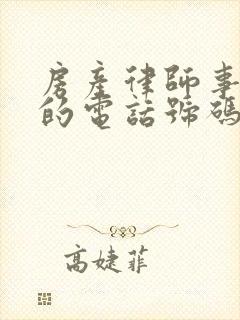 房產律師事
的電話號碼
高婕菲